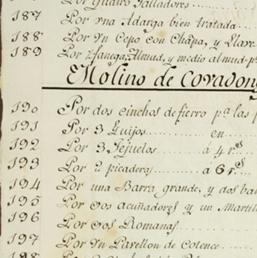 Por quatro Talladores
187 Por vna Adarga bien tratada
188 Por Vn Cepo con Chapa, y Llave
189 Por 2 fanega, Almud, y medio almud p.
Molino de Covadon
190 Por dos cinchos de fierro p.ª las p
191 Por 3 Quijos en
192 Por 3 Tejuelos á 4 r.s
193 Por 2 picadera á 6 r.s
194 Por una Barra grande, y dos ba
195 Por dos Acuñadores y un Martill
196 Por dos Romanas
197 Por Vn Pavellon de Cotence
198